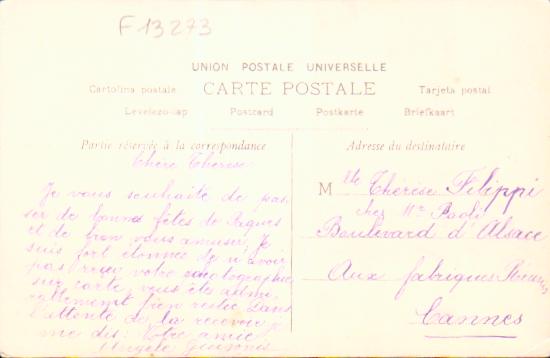 F 13273
UNION POSTALE UNIVERSELLE
Cartolina postale CARTE POSTALE Tarjeta postal
Levelezo-lap Postcard Postkarte Briefkaart
Partie réservée à la correspondance
Adresse du destinataire
Chère Thérèse
Je vous souhaite de pas
ser de bonnes fêtes de Pâques
et de bien vous amuser. Je
suis fort étonnée de n'avoir
pas reçu votre
sur carte, vous êtes
bien restée. Dans
l'attente de la recevoir je
me dis: Votre amie
Angèle
Mlle Thérèse Filippi
chez Mr Paoli
Boulevard d'Alsace
Aux fabriques
Cannes